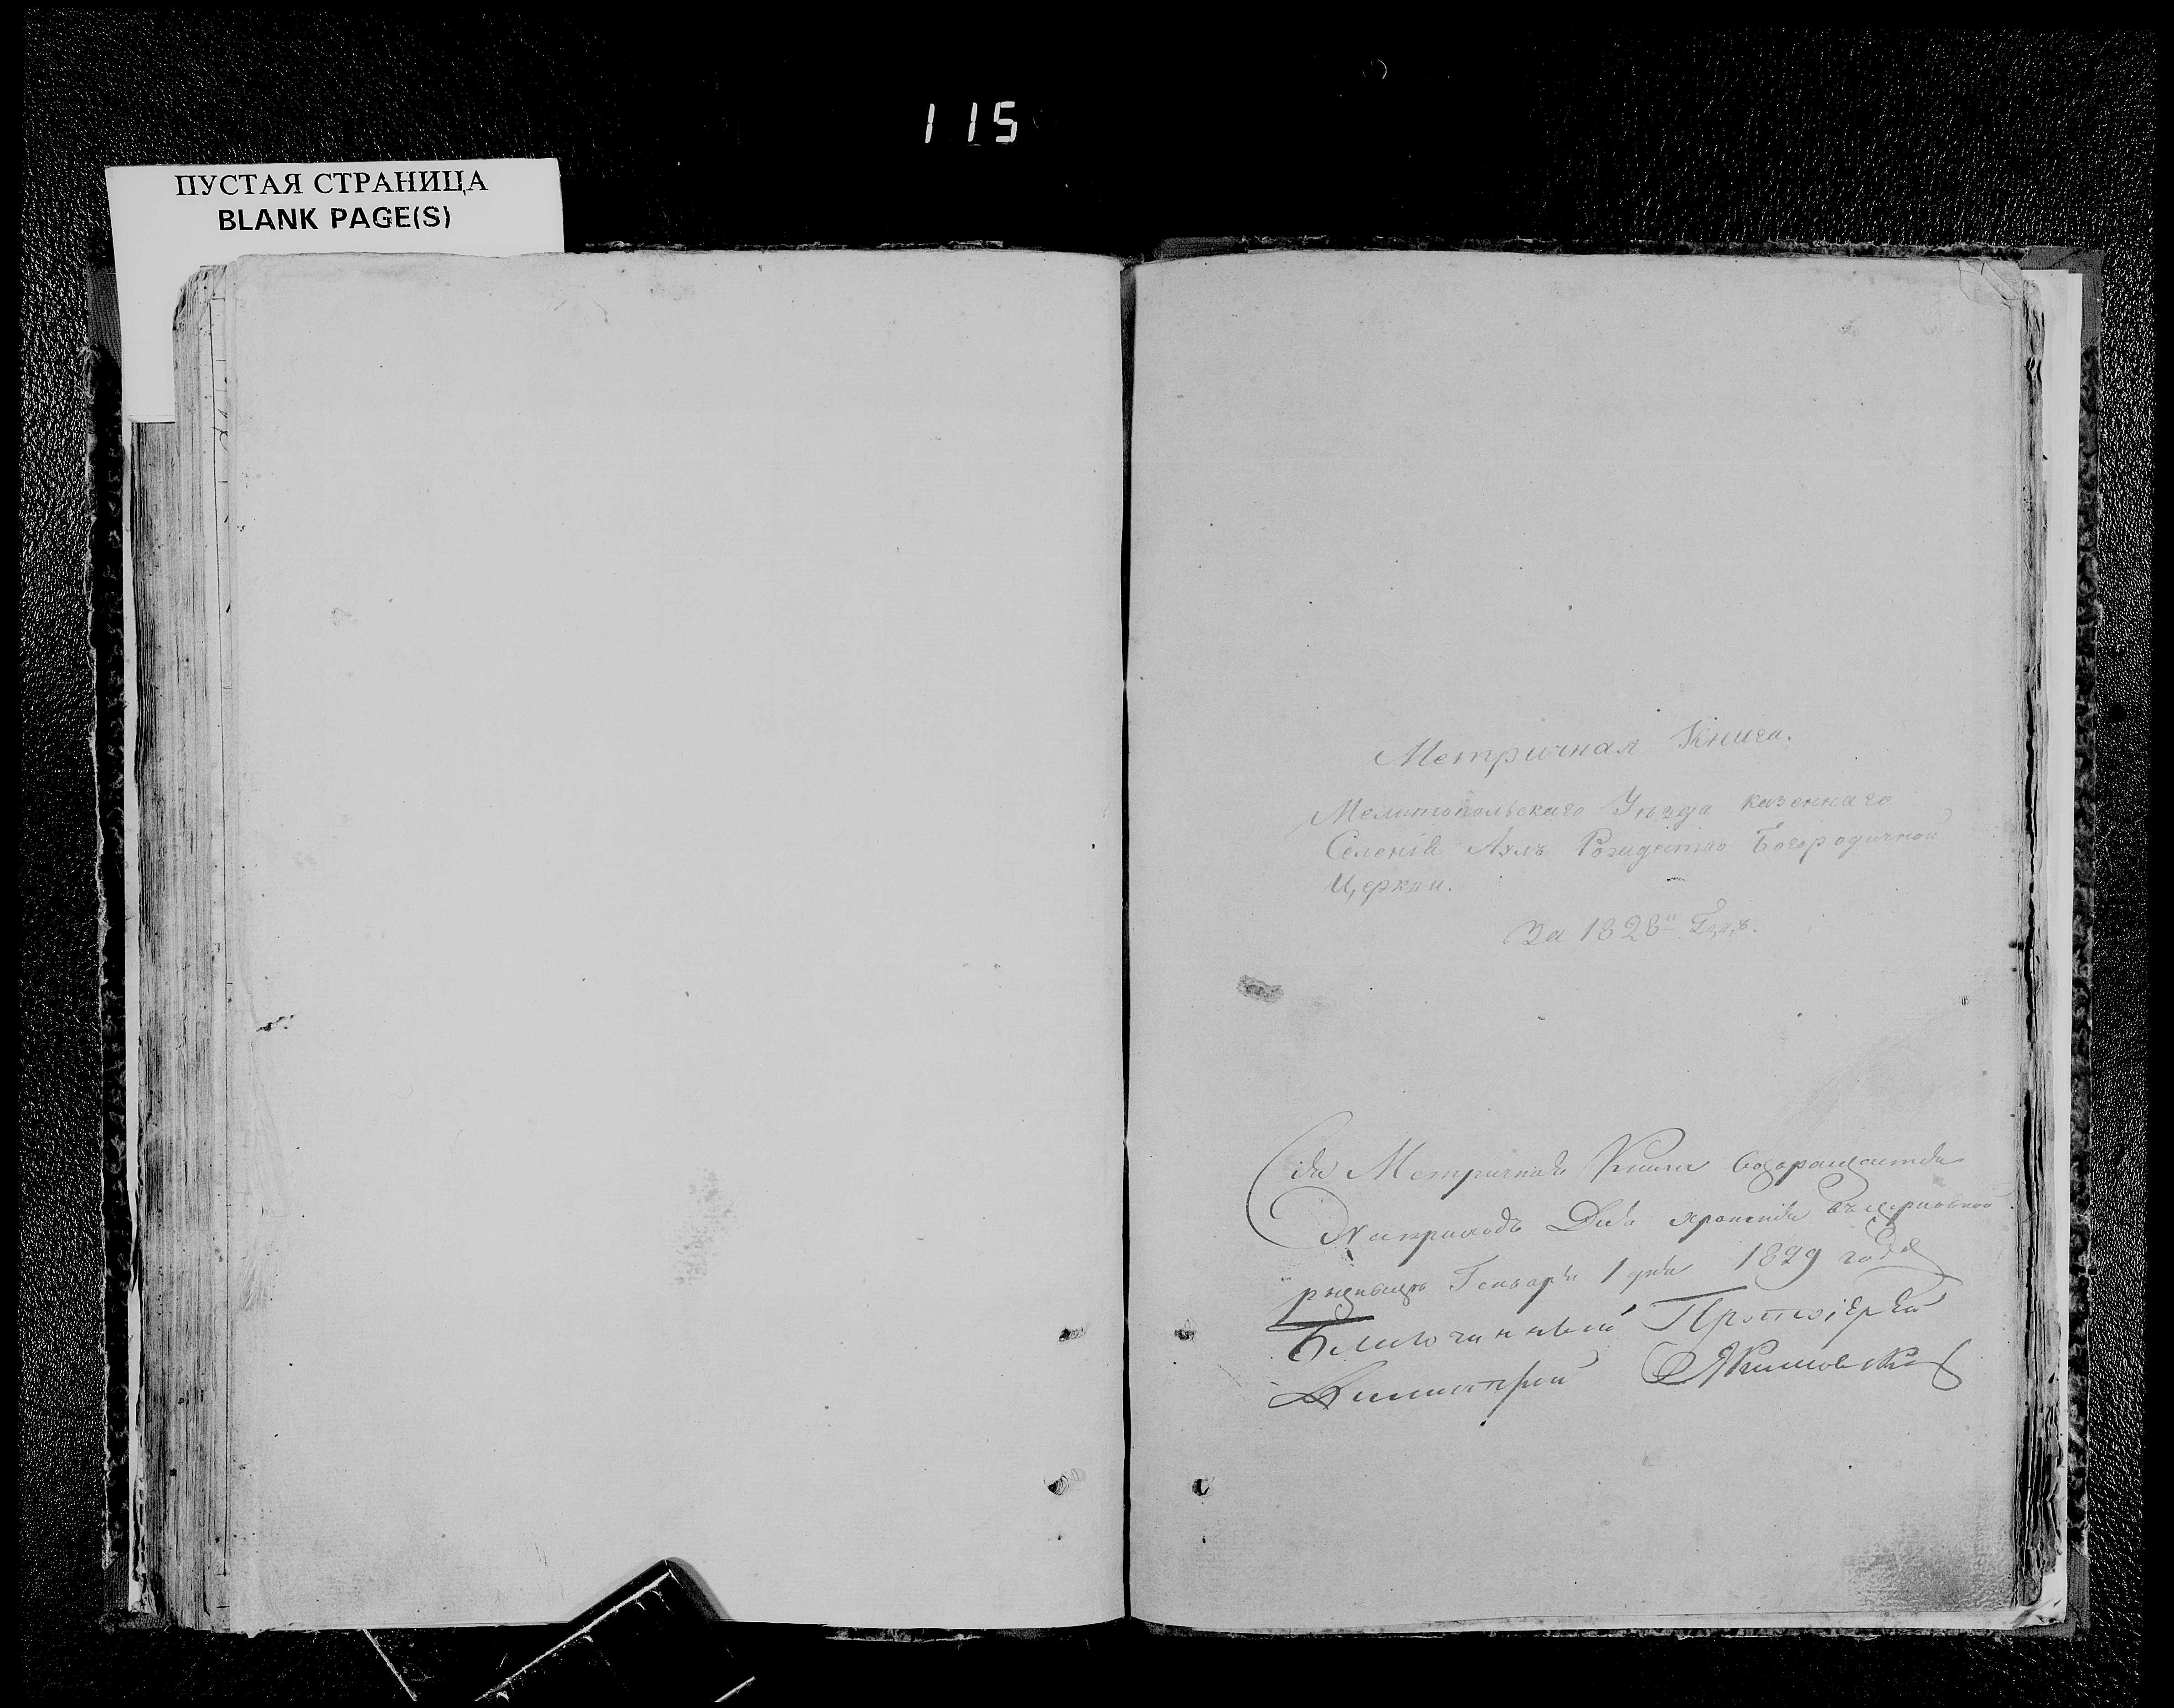 115
ПУСТАЯ СТРАНИЦА
BLANK PAGE(S)
Метричная Книга.
Мелитопольскаго Уѣзда казеннаго
Селенія Рождество Богородичной
Церкви.
За 1828й Годъ.
Сія Метричная Книга возвращается
Для храненія въ церковной
ризницѣ Генваря 1 дня 1829 года
Благочинный Протоіерей
Димитрій